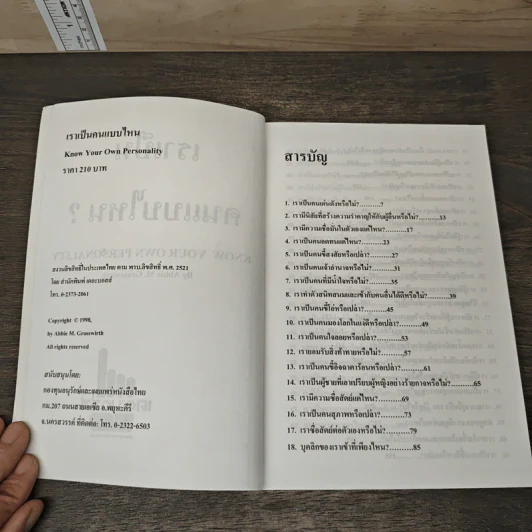 เราเป็นคนแบบไหน
Know Your Own Personality
ราคา 210 บาท
สงวนลิขสิทธิ์ในประเทศไทย ตาม พรบ.ลิขสิทธิ์ พ.ศ. 2521
โดย สำนักพิมพ์ เดอะบอสส์
โทร. 0-2373-2061
Copyright © 1998,
by Abbie M. Grosswirth
All rights reserved
สนับสนุนโดย:
กองทุนอนุรักษ์และเผยแพร่หนังสือไทย
กม.207 ถนนสายเอเซีย อ.พยุหะคีรี
จ.นครสวรรค์ ที่ติดต่อ: โทร. 0-2322-6503
สารบัญ
1. เราเป็นคนเด่นดังหรือไม่?..........7
2. เรามีนิสัยที่สร้างความรำคาญให้กับผู้อื่นหรือไม่?..........13
3. เรามีความเชื่อมั่นในตัวเองแค่ไหน?..........17
4. เราเป็นคนอดทนแค่ไหน?..........23
5. เราเป็นคนขี้สงสัยหรือเปล่า?..........27
6. เราเป็นคนเจ้าอำนาจหรือไม่?..........31
7. เราเป็นคนที่มีน้ำใจหรือไม่?..........35
8. เราทำตัวสนิทสนมและเข้ากับคนอื่นได้ดีหรือไม่?..........39
9. เราเป็นคนขี้โอ่หรือเปล่า?..........45
10. เราเป็นคนมองโลกในแง่ดีหรือเปล่า?..........49
11. เราเป็นคนใจลอยหรือเปล่า?..........53
12. เรายอมรับสิ่งท้าทายหรือไม่?..........57
13. เราเป็นคนขี้อิจฉาตาร้อนหรือเปล่า?..........61
14. เราเป็นผู้ชายที่เอาเปรียบผู้หญิงอย่างร้ายกาจหรือไม่?..........65
15. เรามีความซื่อสัตย์แค่ไหน?..........69
16. เราเป็นคนสุภาพหรือเปล่า?..........73
17. เราซื่อสัตย์ต่อตัวเองหรือไม่?..........79
18. บุคลิกของเราเข้าที่เพียงไหน?..........85